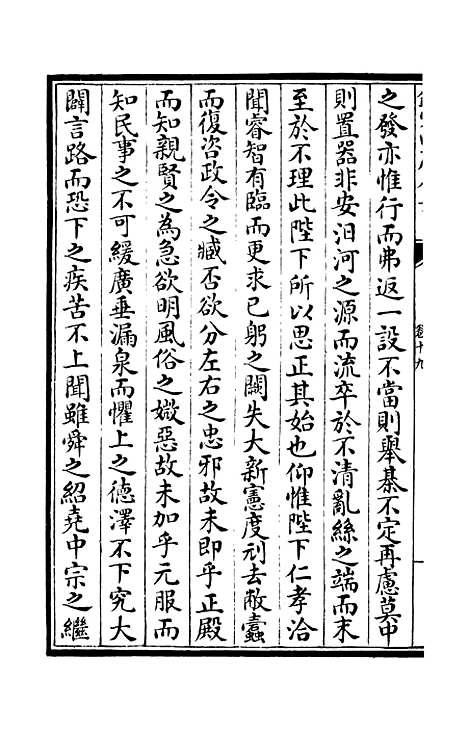 卷十九
之發亦惟行而弗返一設不當則舉棊不定再慮莫中
則置器非安汨河之源而流卒於不清亂絲之端而末
至於不理此陛下所以思正其始也仰惟陛下仁孝洽
聞睿智有臨而更求已躬之闕失大新憲度刓去敝蠹
而復咨政令之臧否欲分左右之忠邪故未即乎正殿
而知親賢之為急欲明風俗之媺惡故未加乎元服而
知民事之不可緩廣垂漏泉而懼上之德澤不下究大
闢言路而恐下之疾苦不上聞雖舜之紹堯中宗之繼